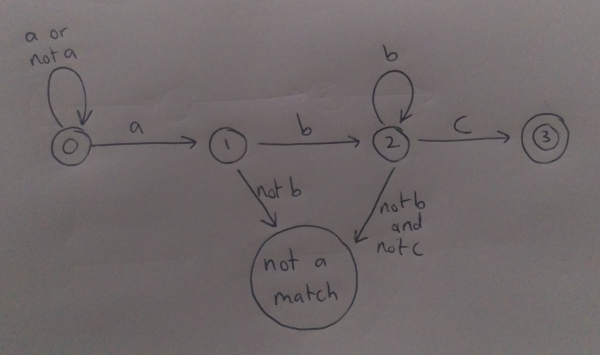 a or
not a
b
0
a
1
b
2
c
3
not b
not b
and
not c
not a
match